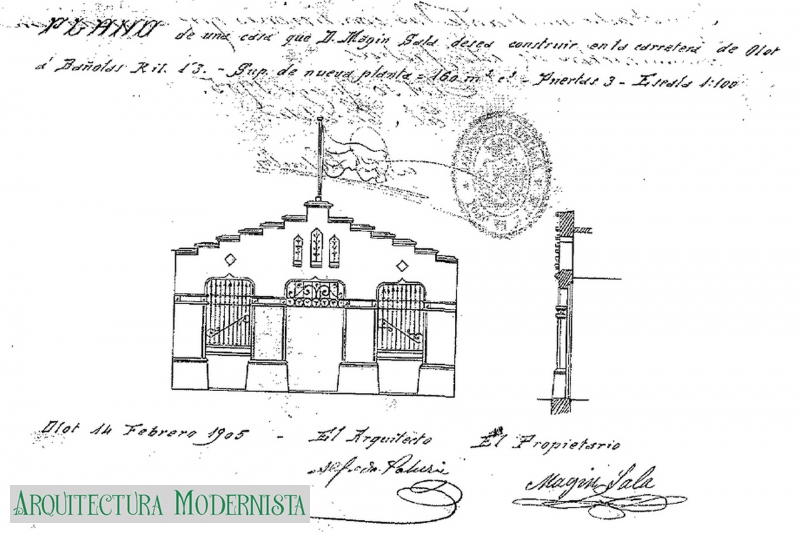 PLANO de una casa que D. Magin Sala desea construir en la carretera de Olot
á Bañolas Kil. 1'3. - Sup. de nueva planta = 160 m² c² - Puertas 3 - Escala 1:100
Olot 14 Febrero 1905 - El Arquitecto El Propietario
Magin Sala
ARQUITECTURA MODERNISTA